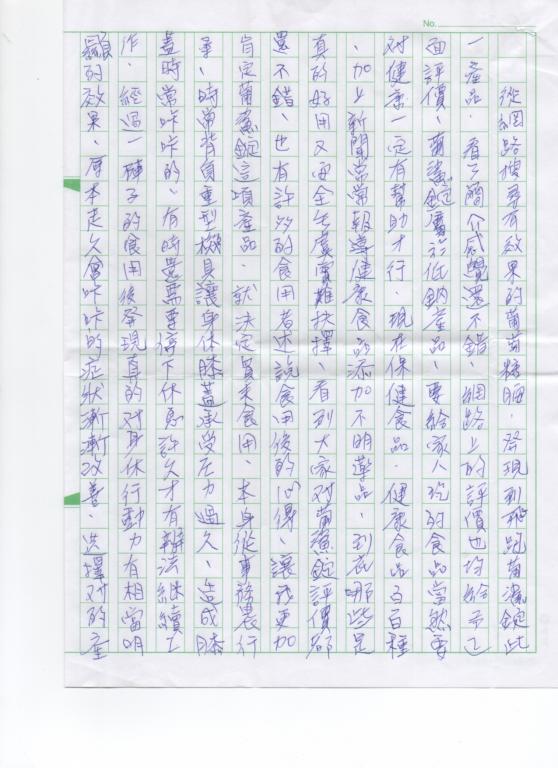 No.
從網路搜尋有效果的葡萄糖胺．發現到飛跑葡濨錠此
一產品．看了簡介感覺還不錯．網路上的評價也均給予正
面評價、葡濨錠屬於低鈉產品、要給家人吃的食品當然要
對健康一定有幫助才行．現在保健食品．健康食品百百種
、加上新聞常常報導健康食品添加不明藥品、到底哪些是
真的好用又安全生虛實難抉擇、看到大家對葡濨錠評價都
還不錯、也有許多的食用者述說食用後的心得、讓我更加
肯定葡濨錠這項產品．就決定買來食用、本身從事務農行
業、時常背負重型機具讓身体膝蓋承受压力過久、造成膝
蓋時常咔咔的、有時還需要停下休息許久才有辦法継續工
作．經過一陣子的食用後發現真的對身体行動力有相當明
顯的效果、原本走久會咔咔的症狀漸漸改善、選擇對的產